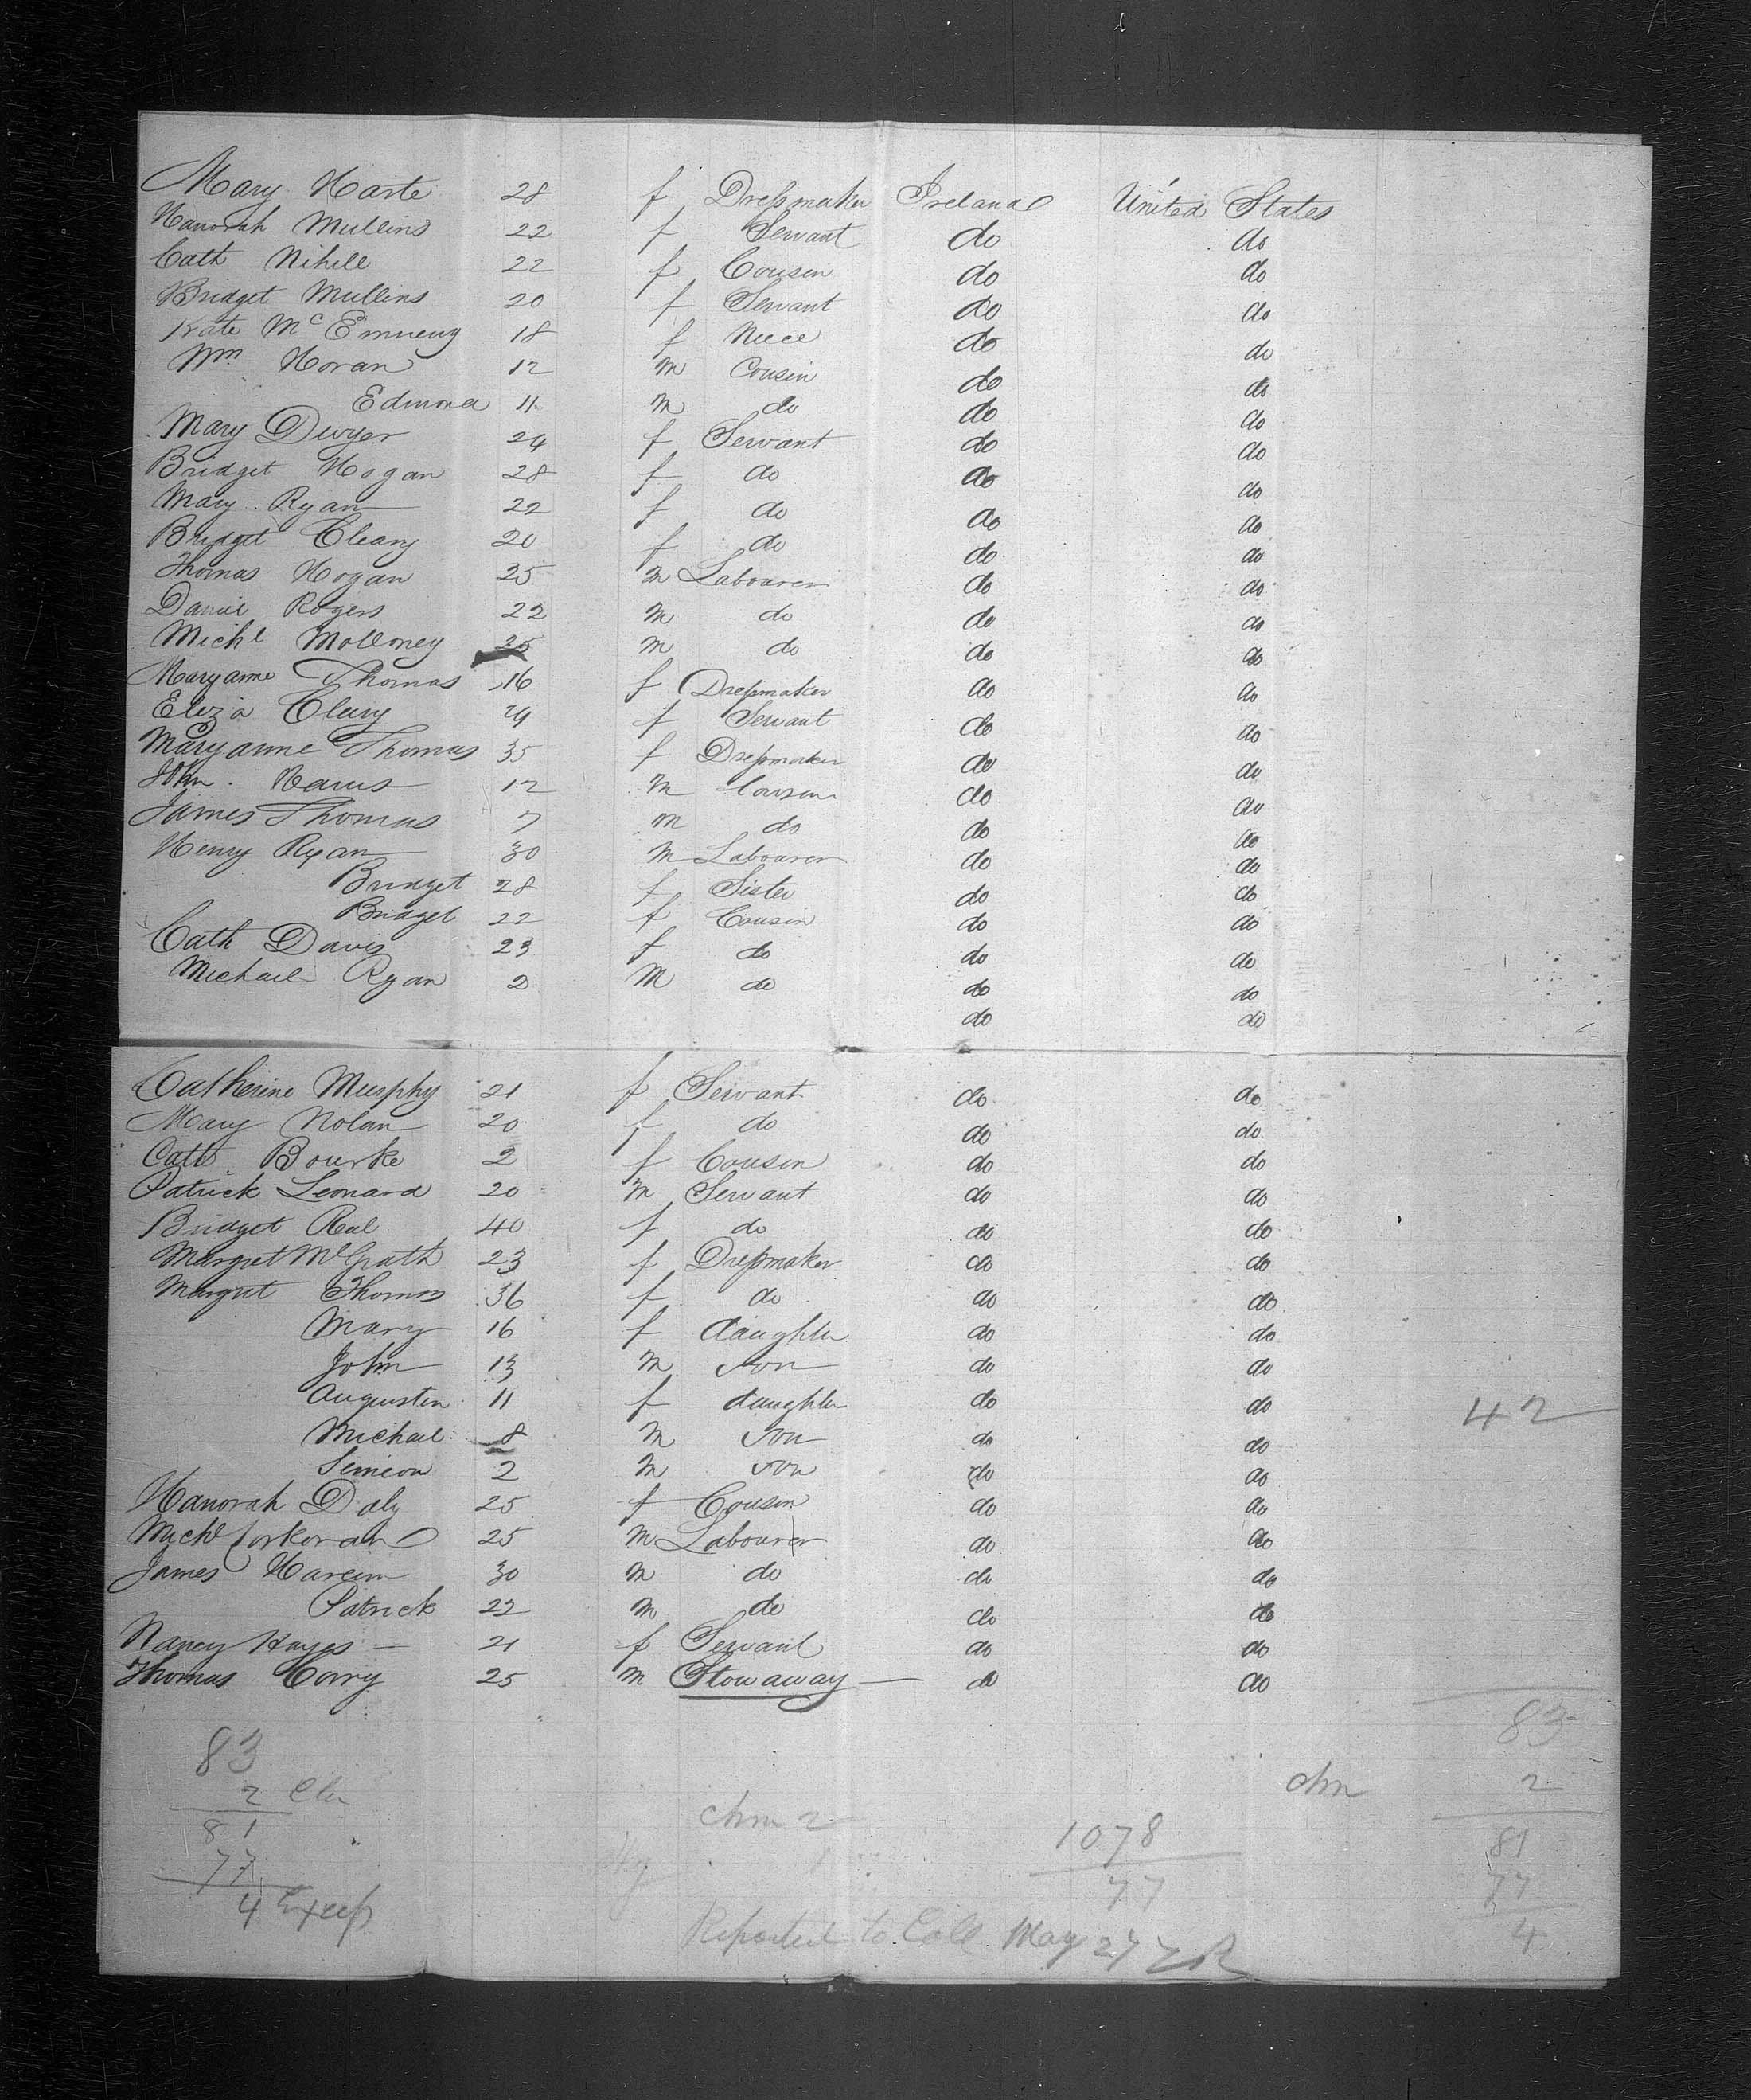 Mary Harte 28 f Dressmaker Ireland United States
Hanorah Mullins 22 f Servant do do
Cath Nihill 22 f Cousin do do
Bridget Mullins 20 f Servant do do
Kate McEnneny 18 f Neece do do
Wm Horan 12 m Cousin do do
Edmond 11 m do do do
Mary Dwyer 24 f Servant do do
Bridget Hogan 28 f do do do
Mary Ryan 22 f do do do
Bridget Cleary 20 f do do do
Thomas Hogan 25 m Labourer do do
Daniel Rogers 22 m do do do
Michl Molloney 25 m do do do
Maryanne Thomas 16 f Dressmaker do do
Eliza Clery f Servant do do
Maryanne Thomas 35 f Dressmaker do do
John 12 m Cousin do do
James Thomas 7 m do do do
Henry Ryan 30 m Labourer do do
Bridget 28 f Sister do do
Bridget 22 f Cousin do do
Cath Davis 23 f do do do
Michael Ryan 2 m do do do
do do
Catherine Murphy 21 f Servant do do
Mary Nolan 20 f do do do
Cath Bourke 2 f Cousin do do
Patrick Leonard 20 m Servant do do
Bridget Real 40 f do do do
Margret McGrath 23 f Dressmaker do do
Margret Thomas 36 f do do do
Mary 16 f daughter do do
John 13 m son do do
Augusten 11 f daughter do do
42
Michael 8 m son do do
Simeon 2 m son do do
Hanorah Daly 25 f Cousin do do
Michl Corkoran 25 m Labourer do do
James 30 m do do do
Patrick 22 m do do do
Nancy Hayes — 21 f Servant do do
Thomas Corry 25 m Stowaway — do do
83 83
2 Chn chm 2
chm 2
81 1078 81
77 77 77
4 4
Reported to Coll May 27